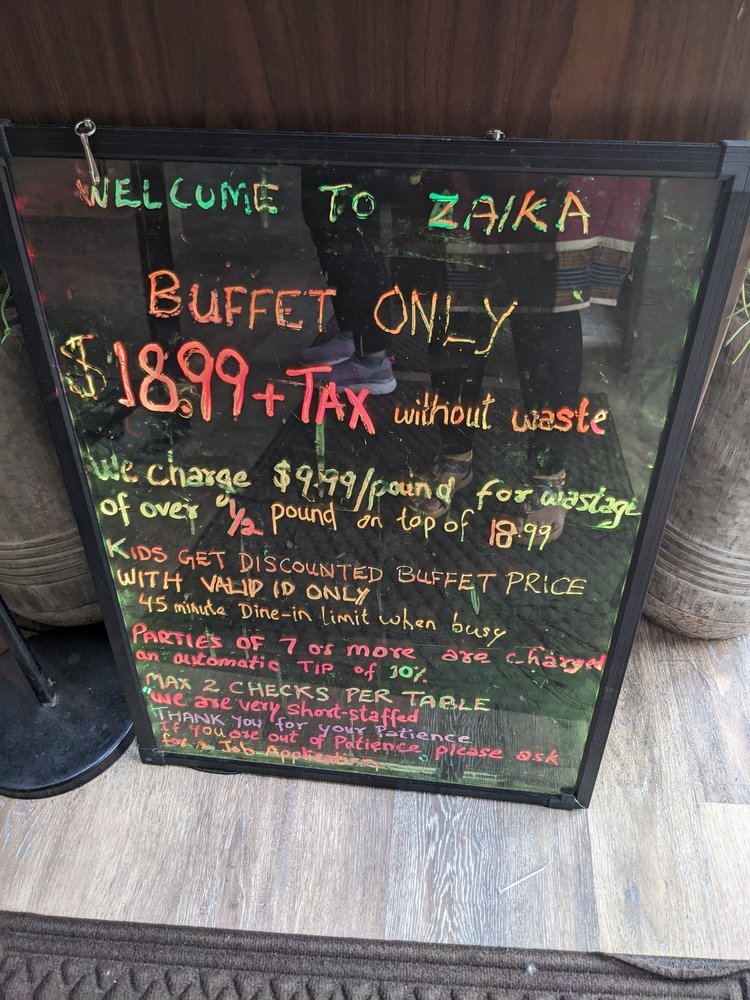 WELCUME TO ZAIKA
BUFFET ONLY
$18.99 + TAX without waste
We charge $9.99/pound for wastage
of over 1/2 pound on top of 18.99
KIDS GET DISCOUNTED BUFFET PRICE
WITH VALID ID ONLY
45 minute Dine-in limit when busy
PARTIES OF 7 or more are charged
an automatic TIP of 10%
MAX 2 CHECKS PER TABLE
We are very Short-staffed
THANK YOU for your Patience
If you are out of Patience please ask
for a Job Application